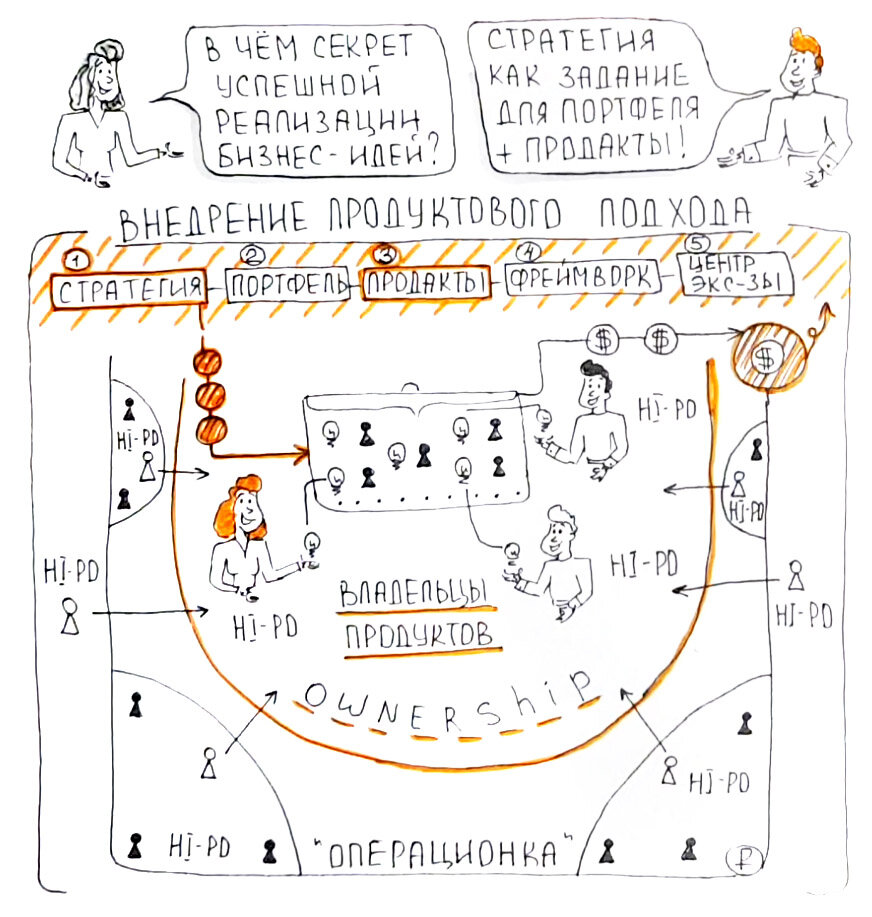 В ЧЁМ СЕКРЕТ
УСПЕШНОЙ
РЕАЛИЗАЦИИ
БИЗНЕС-ИДЕЙ?
СТРАТЕГИЯ
КАК ЗАДАНИЕ
ДЛЯ ПОРТФЕЛЯ
+ ПРОДАКТЫ!
ВНЕДРЕНИЕ ПРОДУКТОВОГО ПОДХОДА
1 2 3 4 5
СТРАТЕГИЯ ПОРТФЕЛЬ ПРОДАКТЫ ФРЕЙМВОРК ЦЕНТР
ЭКС-ЗЫ
$ $ $
HI-PD
HI-PD
HI-PD
HI-PD
HI-PD
HI-PD
HI-PD
ВЛАДЕЛЬЦЫ
ПРОДУКТОВ
HI-PD
OWNERShiP
HI-PD
HI-PD
"ОПЕРАЦИОНКА"
₽